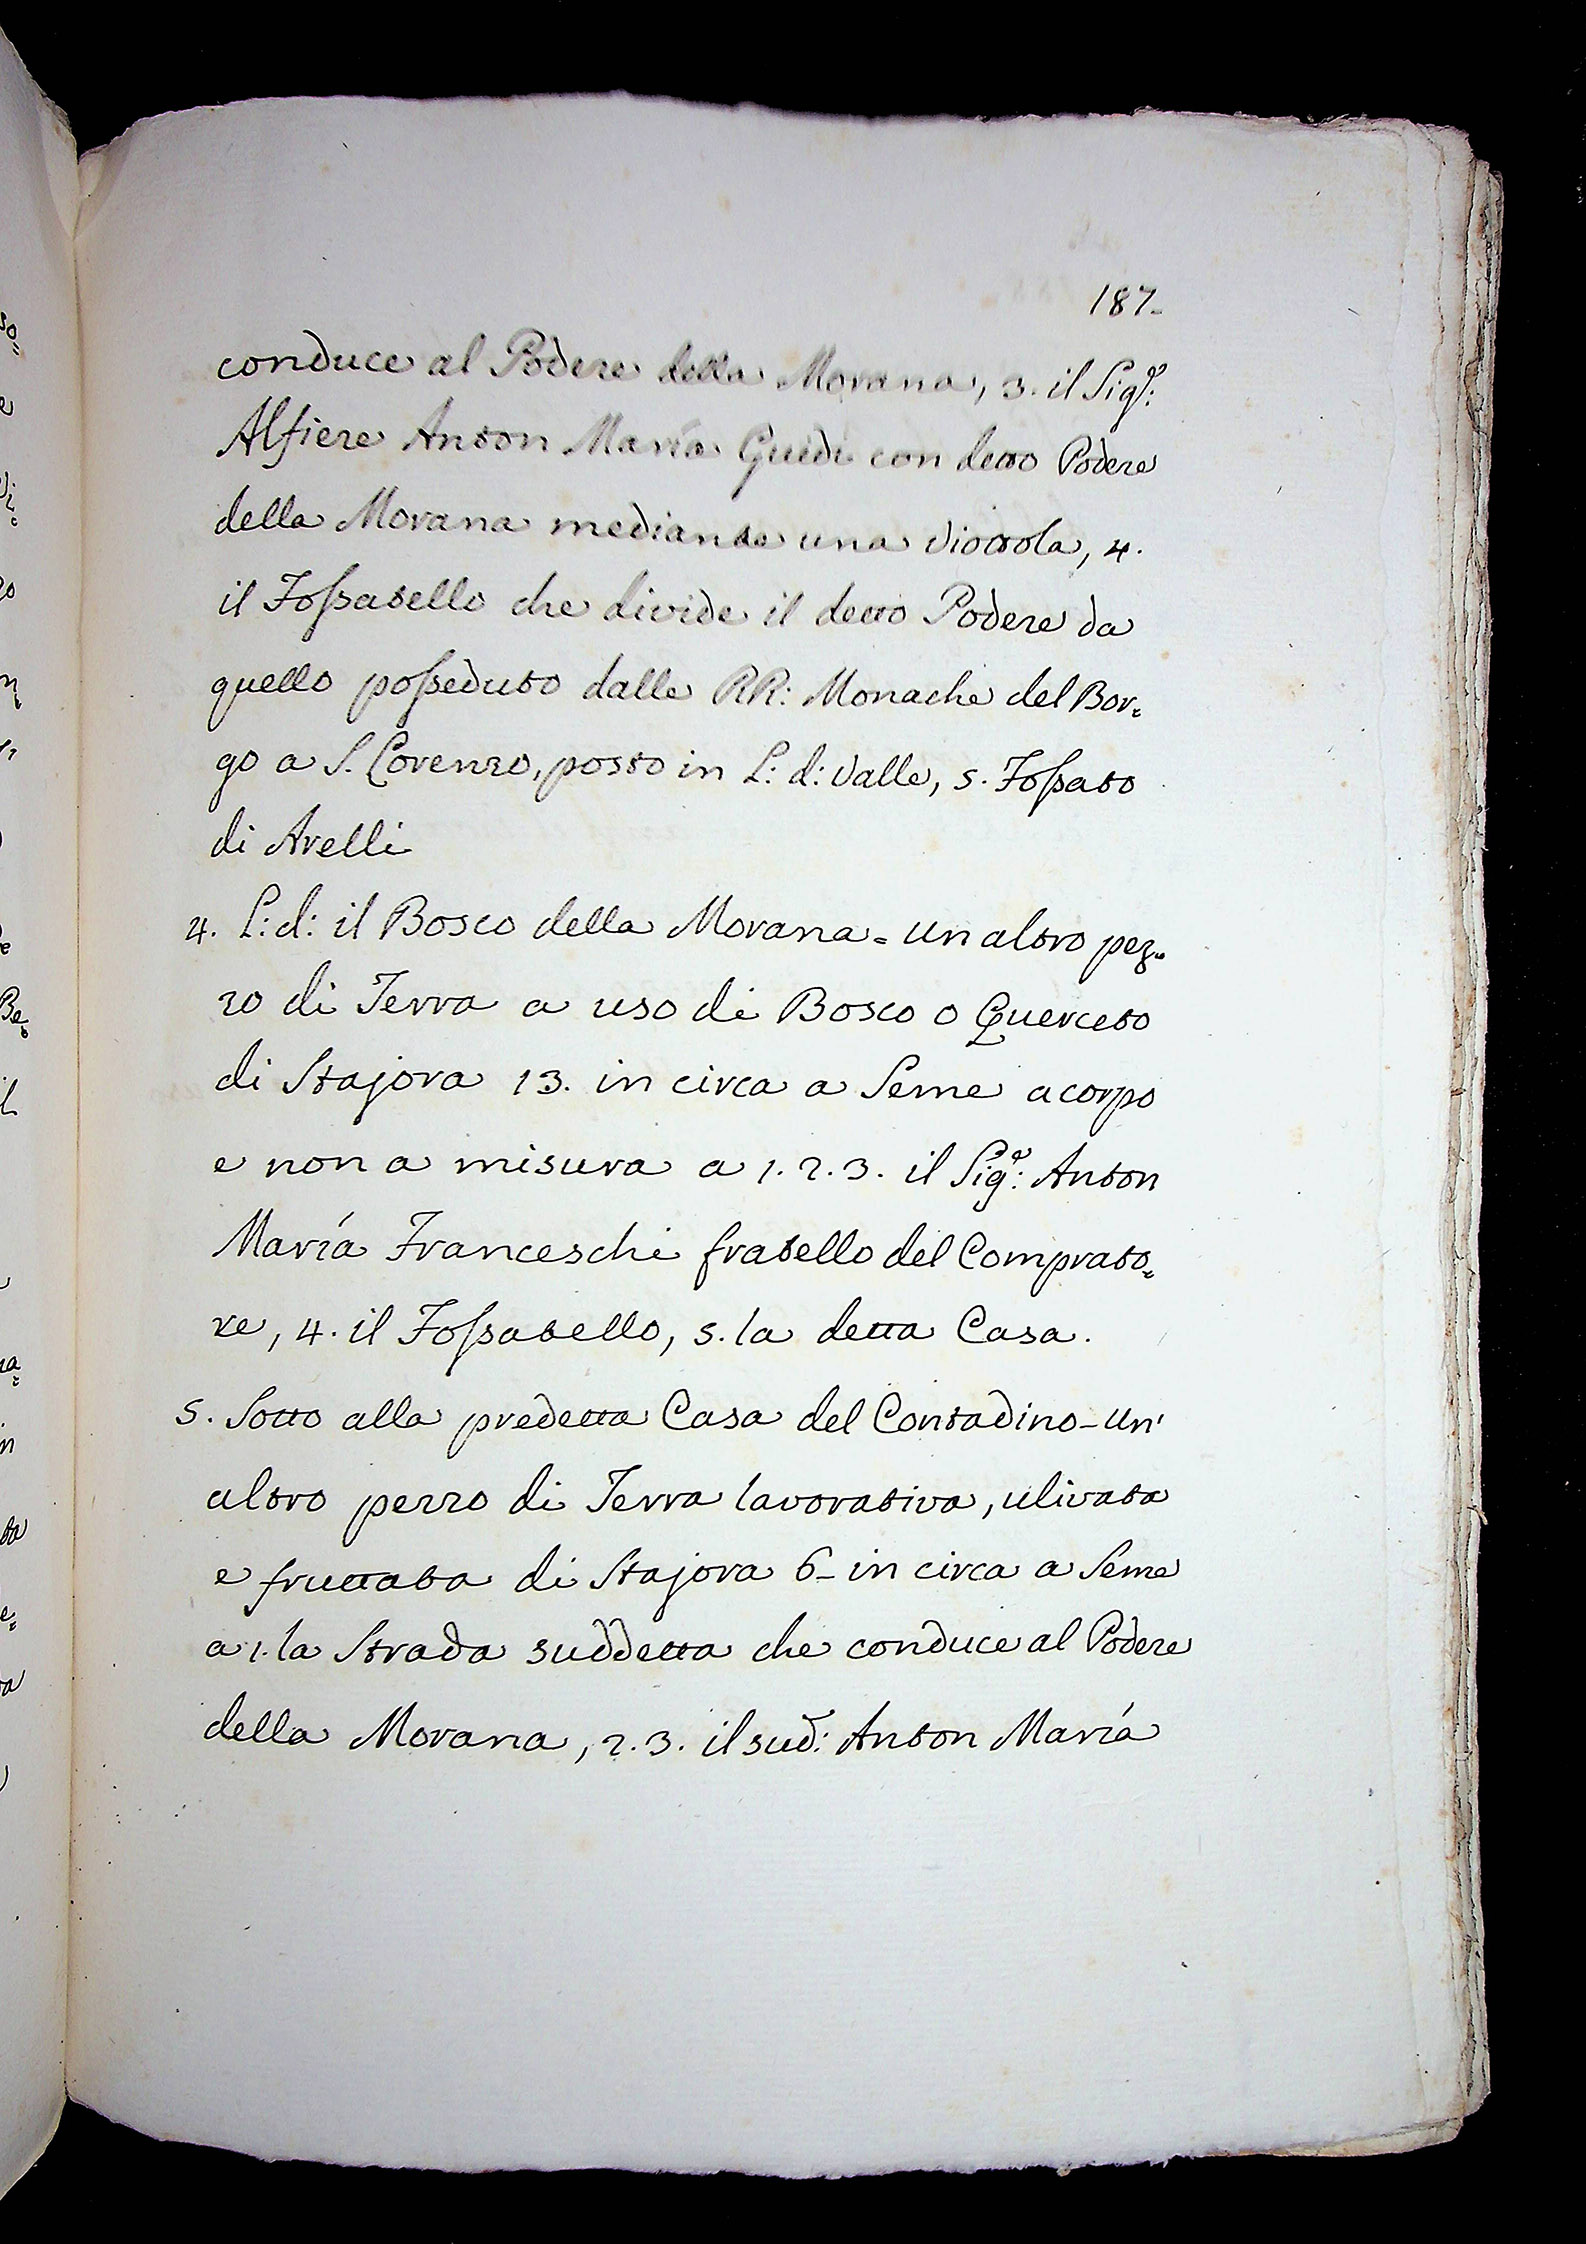 187.
conduce al Podere della Morana, 3. il Sigr:
Alfiere Anton María Guidi con detto Podere
della Morana mediante una viottola, 4.
il Fossatello che divide il detto Podere da
quello posseduto dalle RR: Monache del Bor=
go a S. Lorenzo, posto in L: d: Valle, 5. Fossato
di Arelli
4. L: d: il Bosco della Morana = un altro pez=
zo di Terra a uso di Bosco o Querceto
di Stajora 13. in circa a Seme a corpo
e non a misura a 1. 2. 3. il Sigr: Anton
María Franceschi fratello del Comprato=
re, 4. il Fossatello, 5. la detta Casa.
5. Sotto alla predetta Casa del Contadino - un'
altro pezzo di Terra lavorativa, ulivata
e fruttata di Stajora 6 - in circa a Seme
a 1. la Strada suddetta che conduce al Podere
della Morana, 2. 3. il sud: Anton María